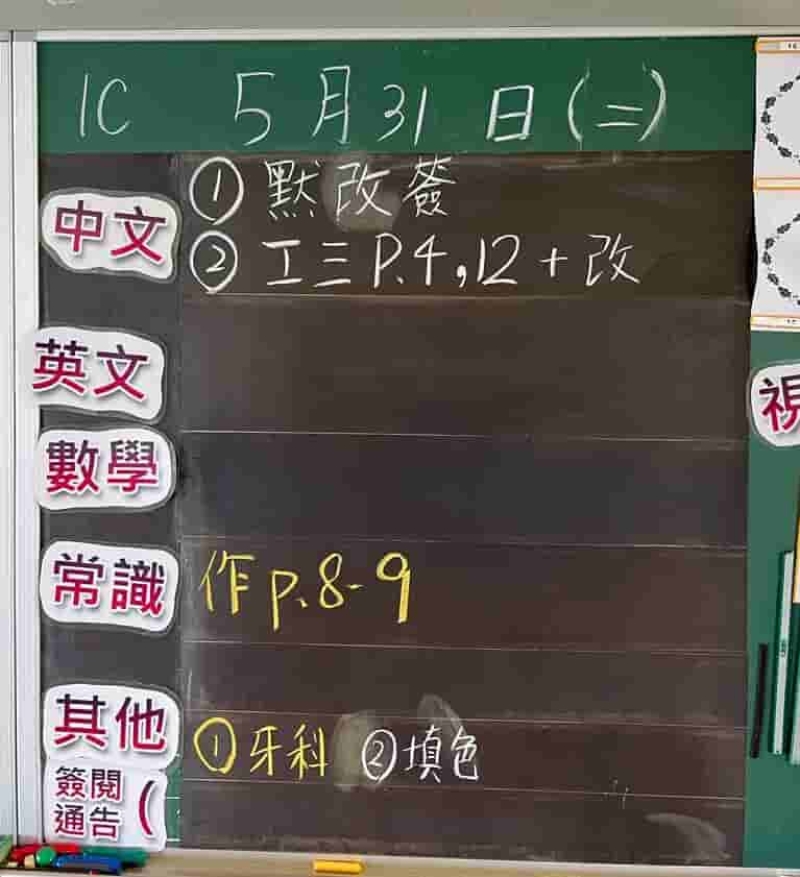 1C 5月31日(二)
中文 ①默改簽
②工三P.4,12+改
英文
數學
常識 作p.8-9
其他 ①牙科 ②填色
簽閱
通告 (
視